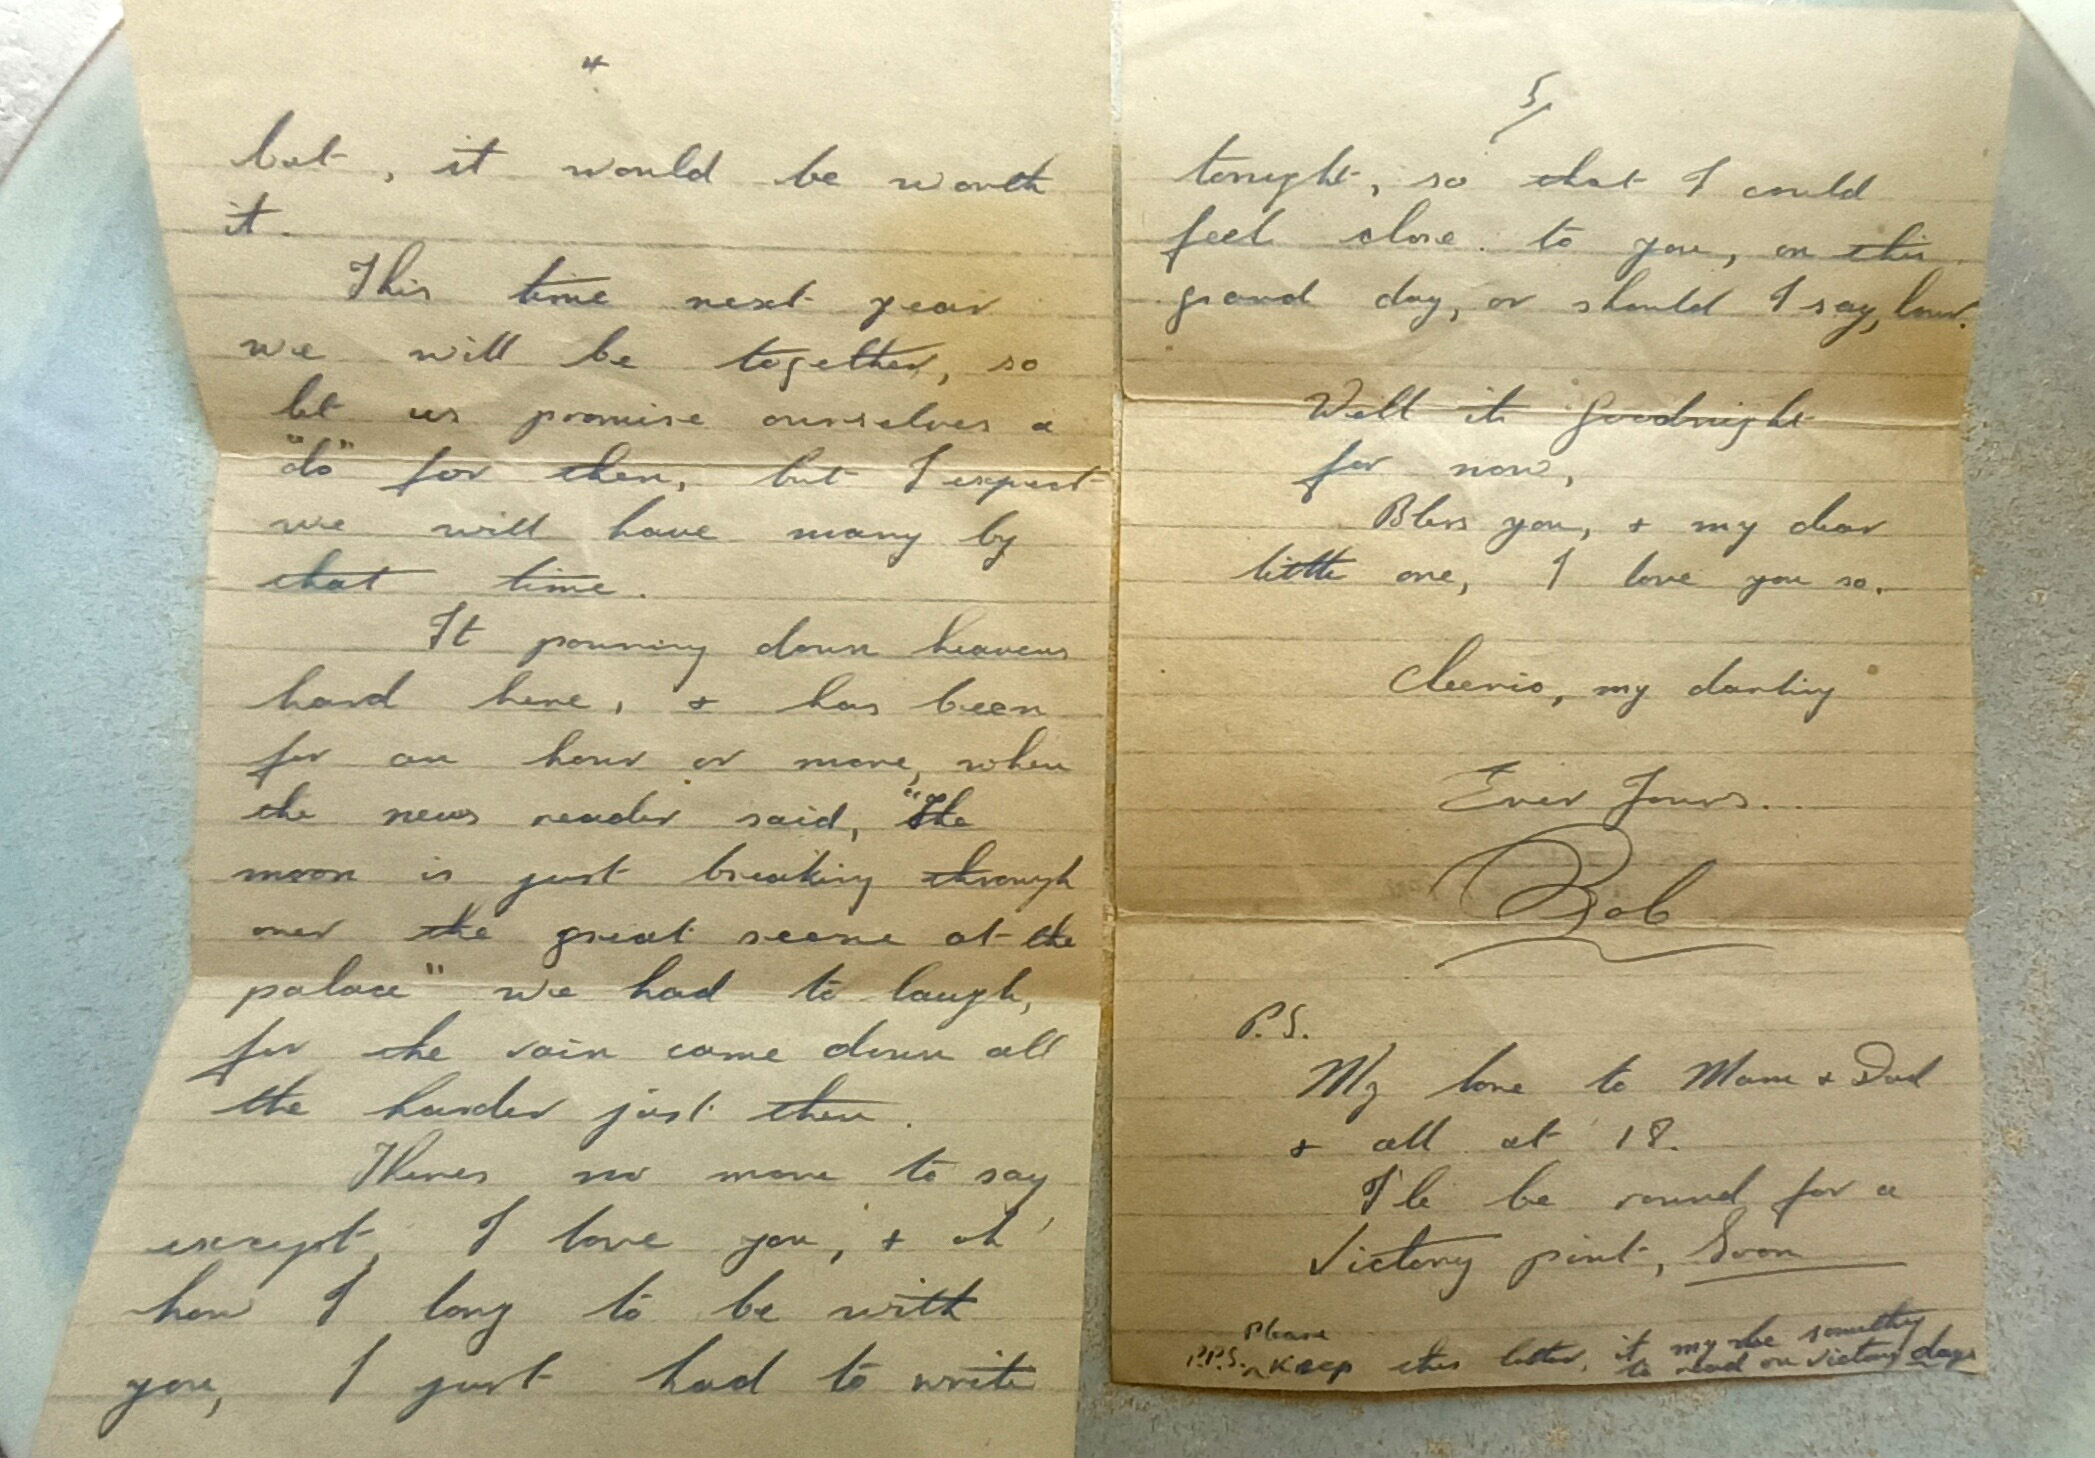 4
but, it would be worth
it.
This time next year
we will be together, so
let us promise ourselves a
"do" for then, but I expect
we will have many by
that time.
It pouring down heavens
hard here, + has been
for an hour or more, when
the news reader said, "The
moon is just breaking through
over the great scene at the
palace" we had to laugh,
for the rain came down all
the harder just then.
Theres no more to say
except, I love you, + oh
how I long to be with
you, I just had to write
5
tonight, so that I could
feel close to you, on this
grand day, or should I say, hour.
Well its Goodnight
for now,
Bless you, + my dear
little one, I love you so.
Cheerio, my darling
Ever Yours..
Bob
P.S.
My love to Mam + Dad
+ all at 18.
I'le be round for a
Victory pint, Soon
Please
P.P.S. Keep this letter, it my be something
to read on victory days